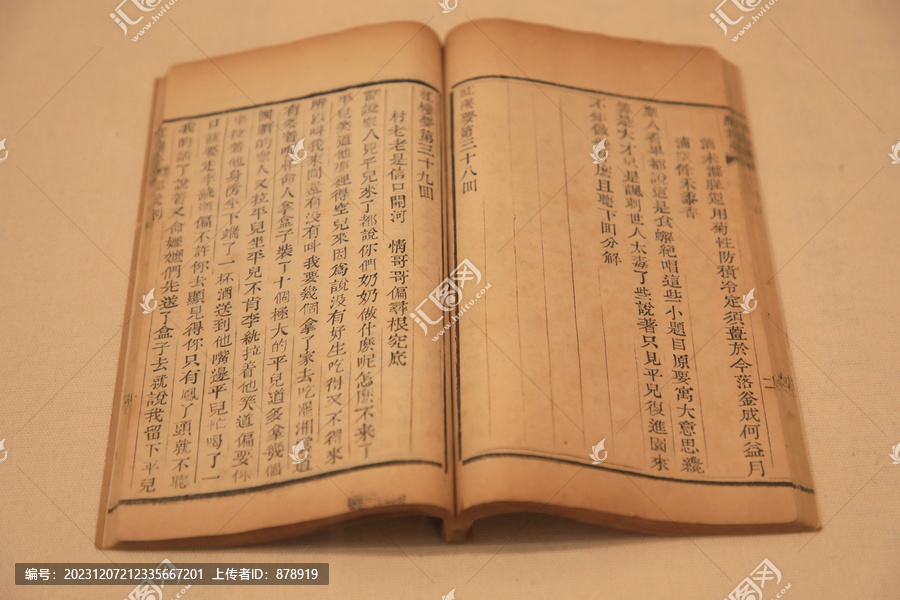 酒未滌腥還用菊性防積冷定須薑於今落釜成何益月
浦空餘禾黍香
衆人看畢都說這是食蟹絕唱這些小題目原要寓大意思纔
算是大才只是諷刺世人太毒了些說著只見平兒復進園來
不知做什麽且聽下回分解
紅樓夢第三十八回
紅樓夢第三十九回
村老老是信口開河 情哥哥偏尋根究底
話說衆人見平兒來了都說你們奶奶做什麽呢怎麽不來了
平兒笑道他那裡得空兒來因爲說没有好生吃得又不得來
所以叫我來問還有没有叫我要幾個拿了家去吃罷湘雲道
有多着呢忙命人拿盒子裝了十個極大的平兒道多拿幾個
團臍的衆人又拉平兒坐平兒不肯李紈拉着他笑道偏要你
坐拉着他身傍坐下端了一杯酒送到他嘴邊平兒忙喝了一
口就要走李紈道偏不許你去顯見得你只有鳳丫頭就不聽
我的話了說着又命嬷嬷們先送了盒子去就說我留下平兒
编号：20231207212335667201 上传者ID：878919